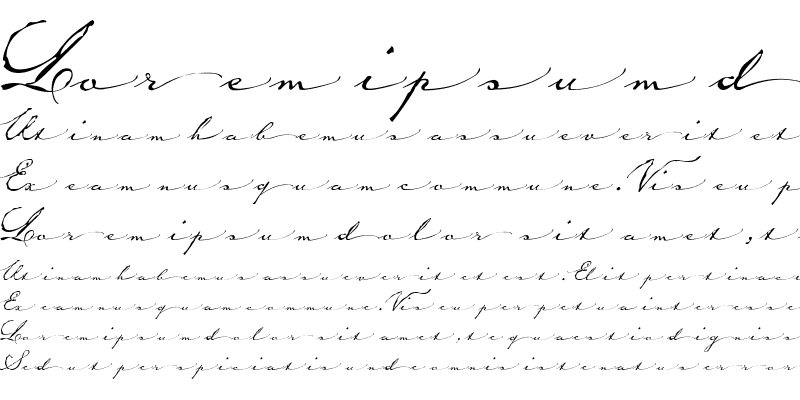 Lorem ipsum d
Ut inam habemus assueverit et
Ex eam nusquam commune. Vis eu p
Lorem ipsum dolor sit amet, t
Ut inam habemus assueverit et est. Elit pertinacia
Ex eam nusquam commune. Vis eu perpetua interesse
Lorem ipsum dolor sit amet, te quaestio digniss
Sed ut perspiciatis unde omnis iste natus error